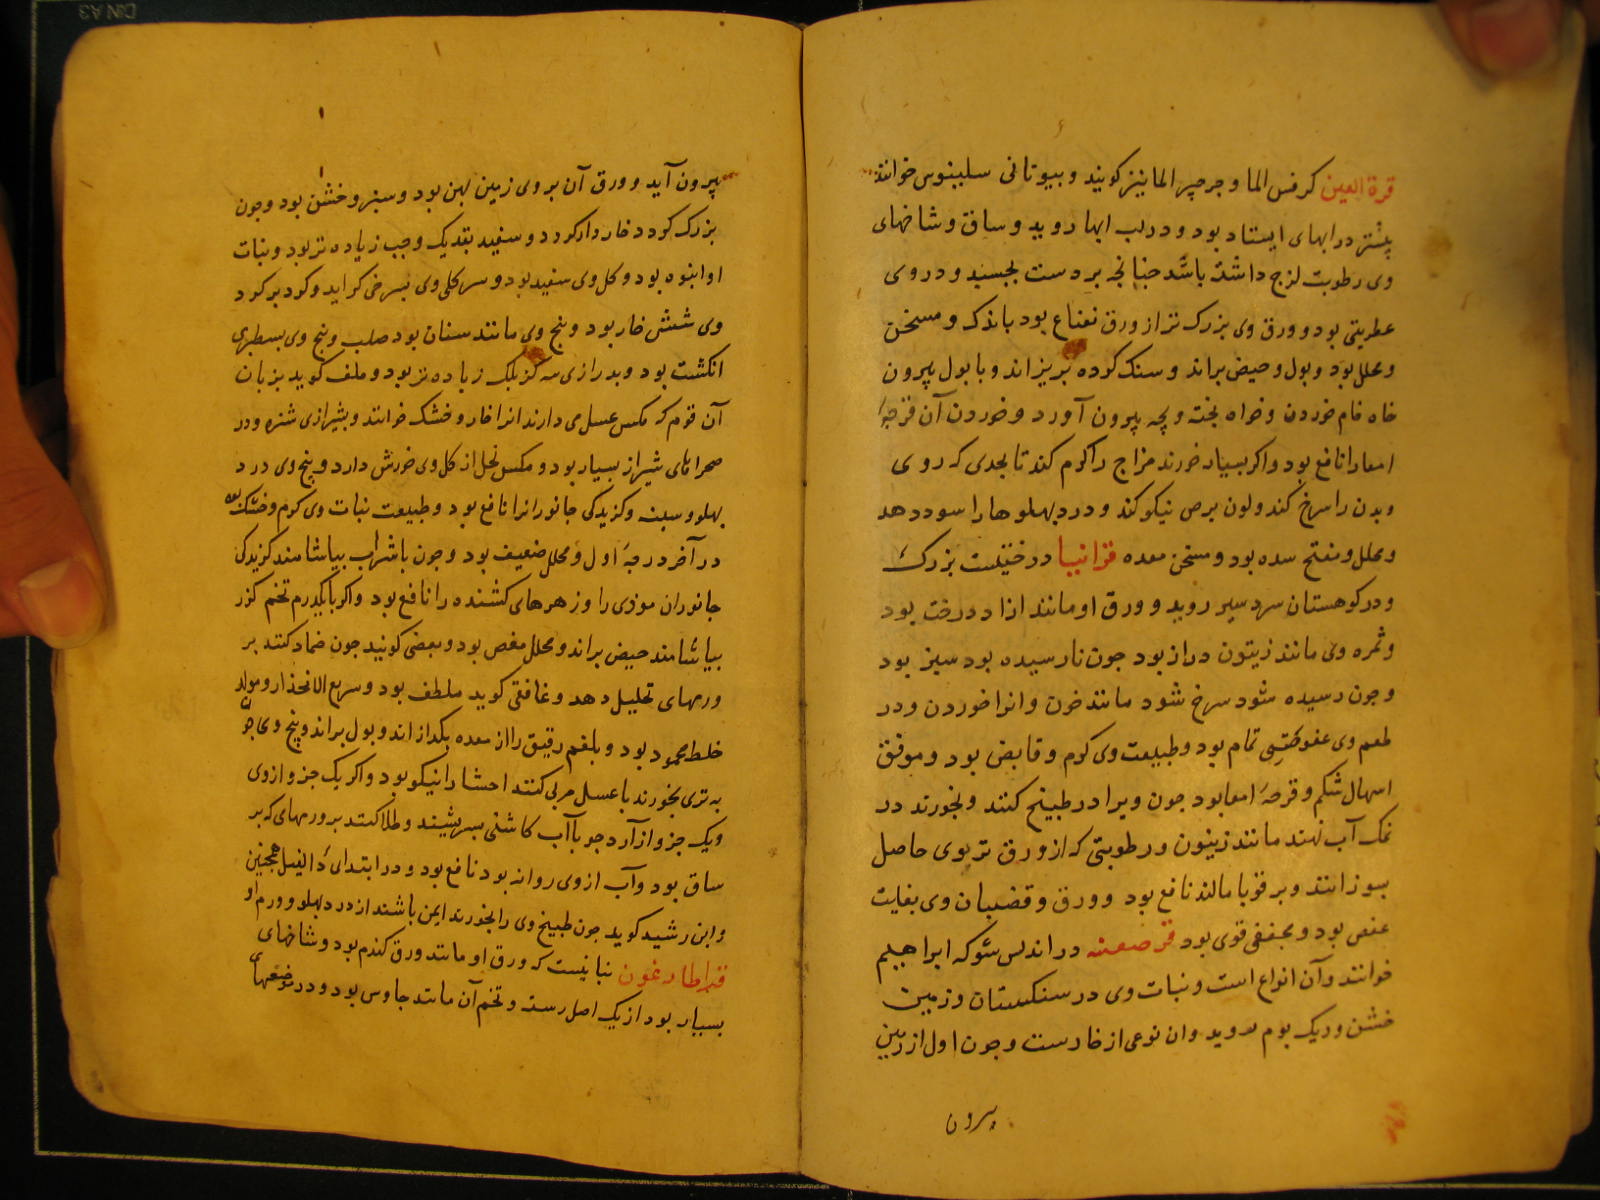 قرة العین کرفس الما و جرجیر الما نیز کویند و بیوتانی سلینوس خوانند
بیشتر در ابهای ایستاد بود و در لب ابها روید و ساق و شاخهای
وی رطوبت لزج داشته باشد جنانجه بر دست بجسبد و در وی
عطریتی بود و ورق وی بزرک تر از ورق نعناع بود باندک و مسخن
و محلل بود و بول و حیض براند و سنک کرده بریزاند و با بول بیرون
خاه خام خوردن و خواه بخته و بچه بیرون آورد و خوردن آن
امعا را نافع بود و اکر بسیار خورند مزاج را کرم کند تا بحدی که روی
و بدن را سرخ کند و لون برص نیکو کند و درد بهلوها را سود دهد
و محلل و مفتح سده بود و مسخن معده قرانیا درختیست بزرک
و در کوهستان سردسیر روید و ورق او مانند ازاددرخت بود
و ثمره وی مانند زیتون دراز بود جون نارسیده بود سبز بود
و جون رسیده شود سرخ شود مانند خون و انرا خوردن و در
طعم وی عفوصتی تمام بود و طبیعت وی کرم و قابض بود و موفق
اسهال شکم و قرحهٔ امعا بود جون ویرا در طبیخ کنند و بخورند در
نمک آب نهند مانند زیتون و رطوبتی که از ورق تر بوی حاصل
بسوزانند و بر قوبا مالند نافع بود و ورق و قضبان وی بغایت
عفص بود و مجففی قوی بود قرصعنه در اندلس شوکه ابراهیم
خوانند و آن انواع است و نبات وی در سنکستان و زمین
خشن و ریک بوم روید و ان نوعی از خارست و جون اول از زمین
بیرون
بیرون آید و ورق آن بر وی زمین بهن بود و سبز و خشن بود و جون
بزرک کردد خاردار کردد و سفید بقد یک وجب زیاده تر بود و نبات
او انبوه بود و کل وی سفید بود و سر کلی وی بسرخی کراید و کرد بر کرد
وی شش خار بود و بیخ وی مانند سنان بود صلب و بیخ وی بسطبری
انکشت بود و بدرازی سه کز بلک زیاده تر بود و ملف کوید بزبان
آن قوم که مکس عسل می دارند انرا خار و خشک خوانند و بشیرازی شنره و در
صحراهای شیراز بسیار بود و مکس نحل از کل وی خورش دارد و بیخ وی درد
بهلو و سینه و کزیدکی جانورانرا نافع بود و طبیعت نبات وی کرم و خشک بود
در آخر درجهٔ اول و محلل ضعیف بود و جون با شراب بیاشامند کزیدکی
جانوران موذی را و زهرهای کشنده را نافع بود و اکر با یکدرم تخم کزر
بیاشامند حیض براند و محلل مغص بود و بعضی کویند جون ضماد کنند بر
ورمهای تحلیل دهد و غافقی کوید ملطف بود و سریع الانحدار و مولد
خلط محمود بود و بلغم رقیق را از معده بکدازاند و بول براند و بیخ وی جون
به تری بخورند با عسل مربی کنند احشا را نیکو بود و اکر یک جزو از وی
و یک جزو از آرد جو با آب کاشنی بسریشیند و طلا کنند بر ورمهای که بر
ساق بود و آب از وی روانه بود نافع بود و در ابتدای دا الفیل همجنین
و ابن رشید کوید جون طبیخ وی را بخورند ایمن باشند از درد بهلو و ورم او
قراطارغون نباتیست که ورق او مانند ورق کندم بود و شاخهای
بسیار بود از یک اصل رسته و تخم آن مانند جاوس بود و در موضعهای